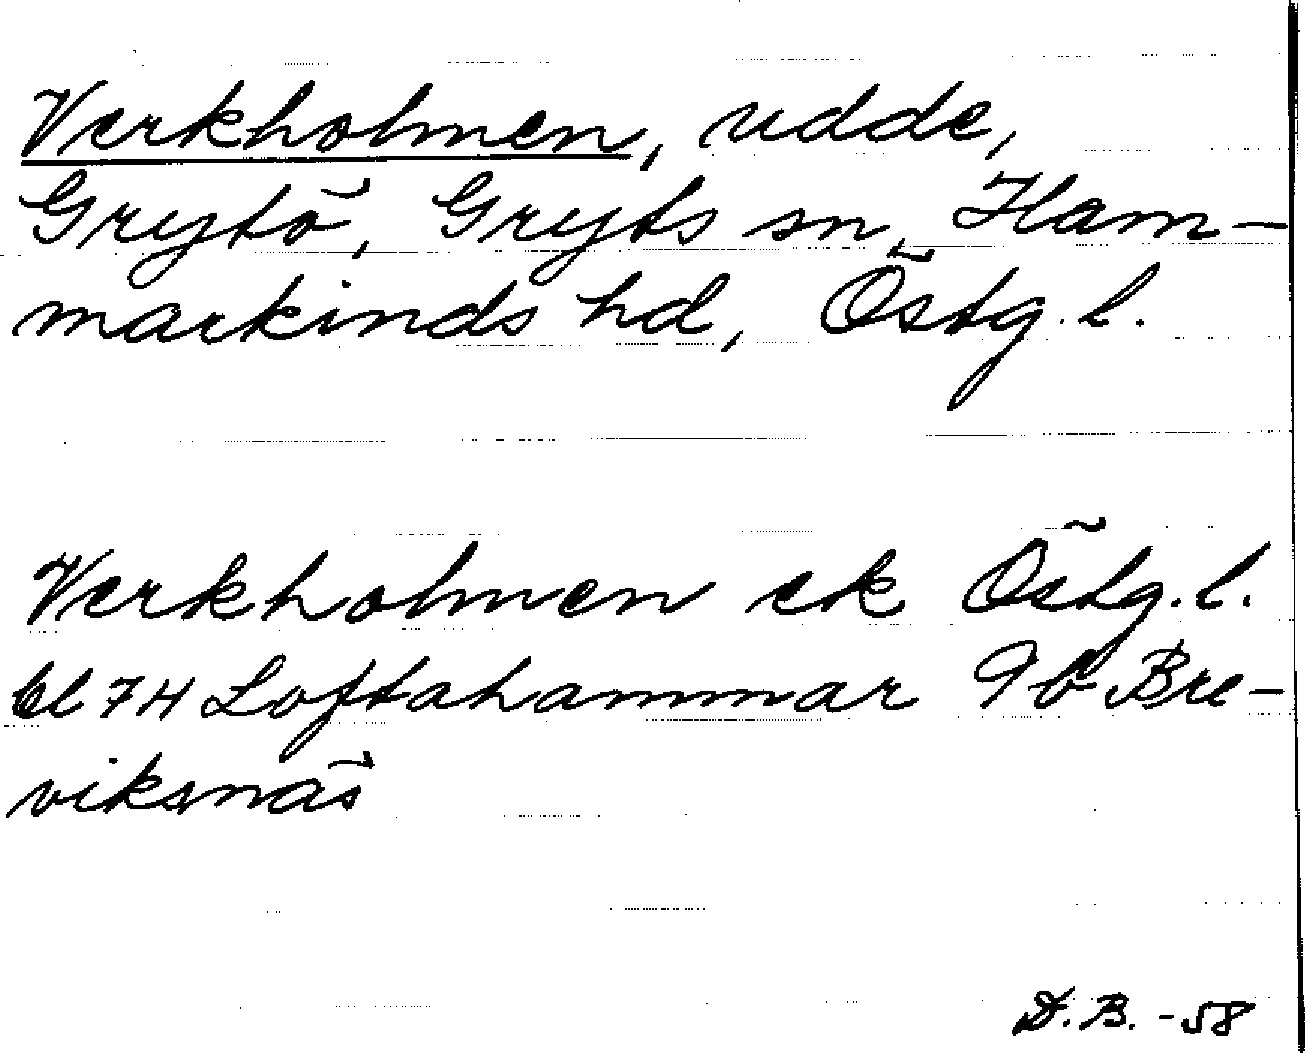 Verkholmen, udde,
Grytö, Gryts sn, Ham-
markinds hd, Östg. l.
Verkholmen ek Östg. l.
bl 7H Loftahammar 9b Bre-
viksnäs
D.B. -58